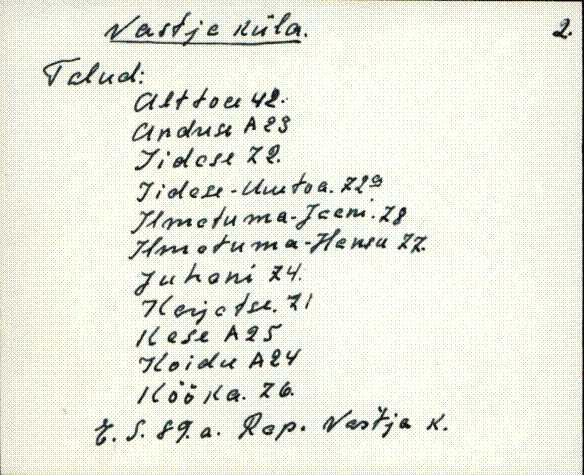 Vastja küla. 2.
Talud:
Alttoa 42.
Anduse A23
Iidase Z2.
Iidase-Uuetoa. Z2a
Ilmatuma-Jaani. Z8
Ilmatuma-Hansu Z7.
Juhani Z4.
Karjatse. Z1
Kase A25
Koidu A24
Kööka. Z6.
E. S. 89. a. Rap. Vastja k.